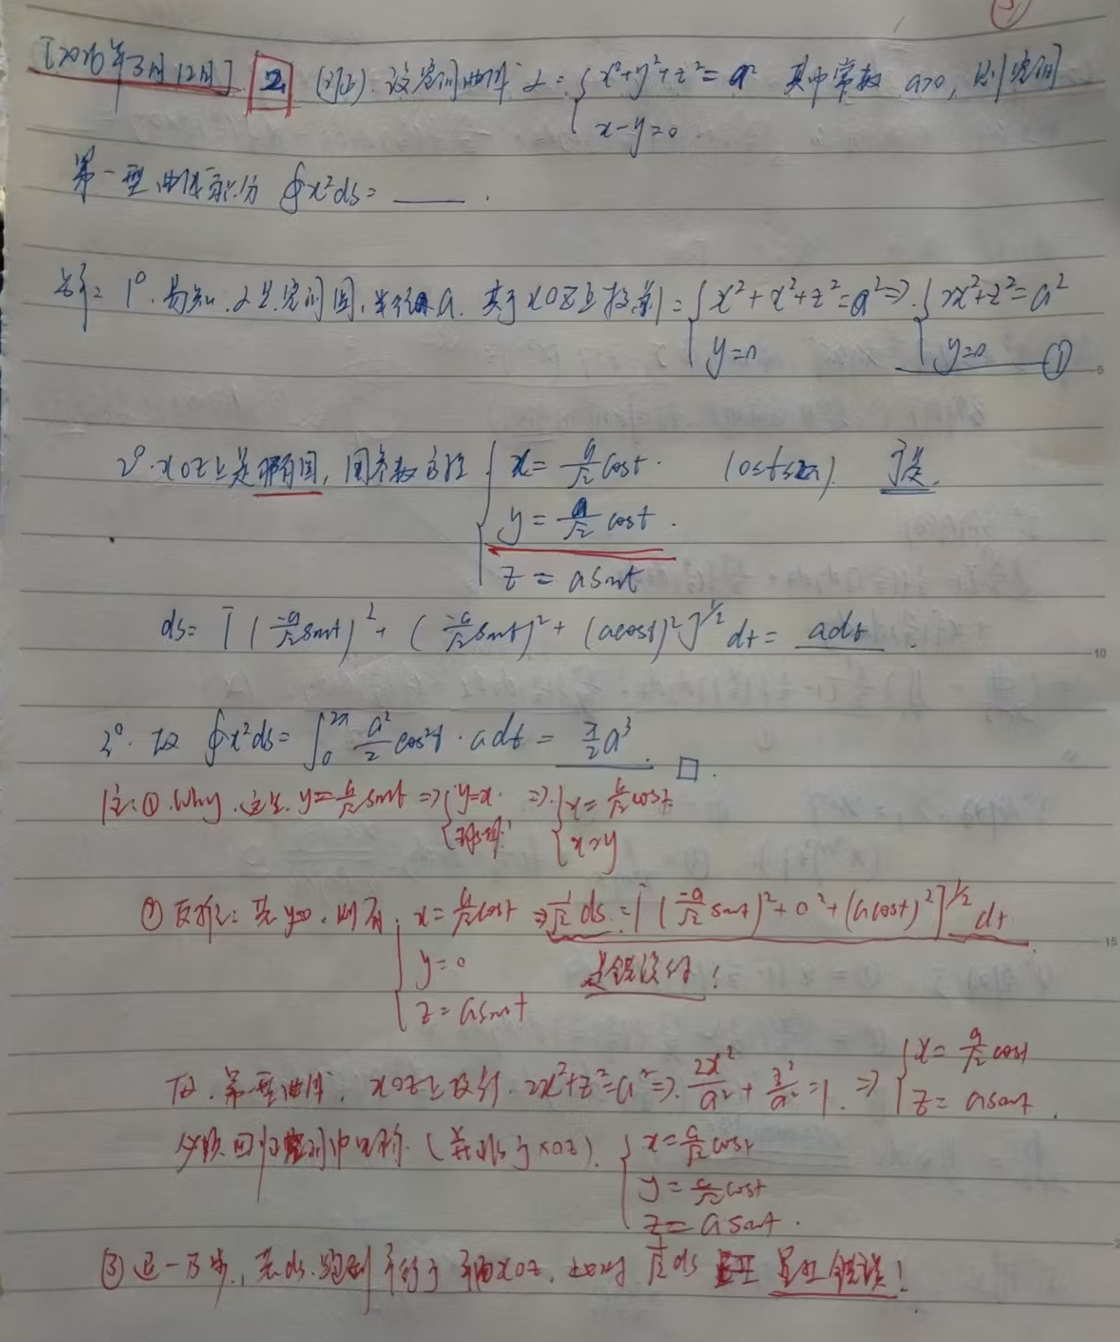 [2026年3月12日] 2 (列2). 设空间曲线 L: { x²+y²+z²=a² 其中常数 a>0, 则空间
x-y=0
第一型曲线积分 ∮x²ds= ____ .
解: 1°. 易知 L是空间圆, 半径a. 其于XOZ上投影 { x²+x²+z²=a² ⇒ { 2x²+z²=a²
y=0 y=0 ①
2°. XOZ上是椭圆, 用参数方程 { x= a/√2 cost. (0≤t≤2π).
y= a/√2 cost.
z= asint
ds= [(-a/√2 sint)²+(-a/√2 sint)²+(acost)²]^{1/2} dt= adt.
3°. 故 ∮x²ds= ∫₀^{2π} a²/2 cos²t · adt = π/2 a³. □.
注: ① Why. y= a/√2 sint ⇒ { y=x. ⇒ { x= a/√2 cost
x=y
② 反证: 若 y=0, 则有 { x= a/√2 cost ⇒ 1/√2 ds = [(-a/√2 sint)²+0²+(acost)²]^{1/2} dt
y=0 是错误的!
z=asint
故. 第一型曲线, XOZ上 2x²+z²=a² ⇒ 2x²/a² + z²/a² =1. ⇒ { x= a/√2 cost
z= asint.
必须回归空间中 (并非于XOZ). { x= a/√2 cost
y= a/√2 cost
z= asint.
③ 进一步, 若ds 平行于 XOZ, 1/√2 ds 是错误!